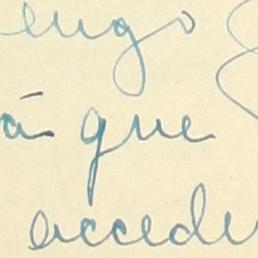 engo
á que
accede